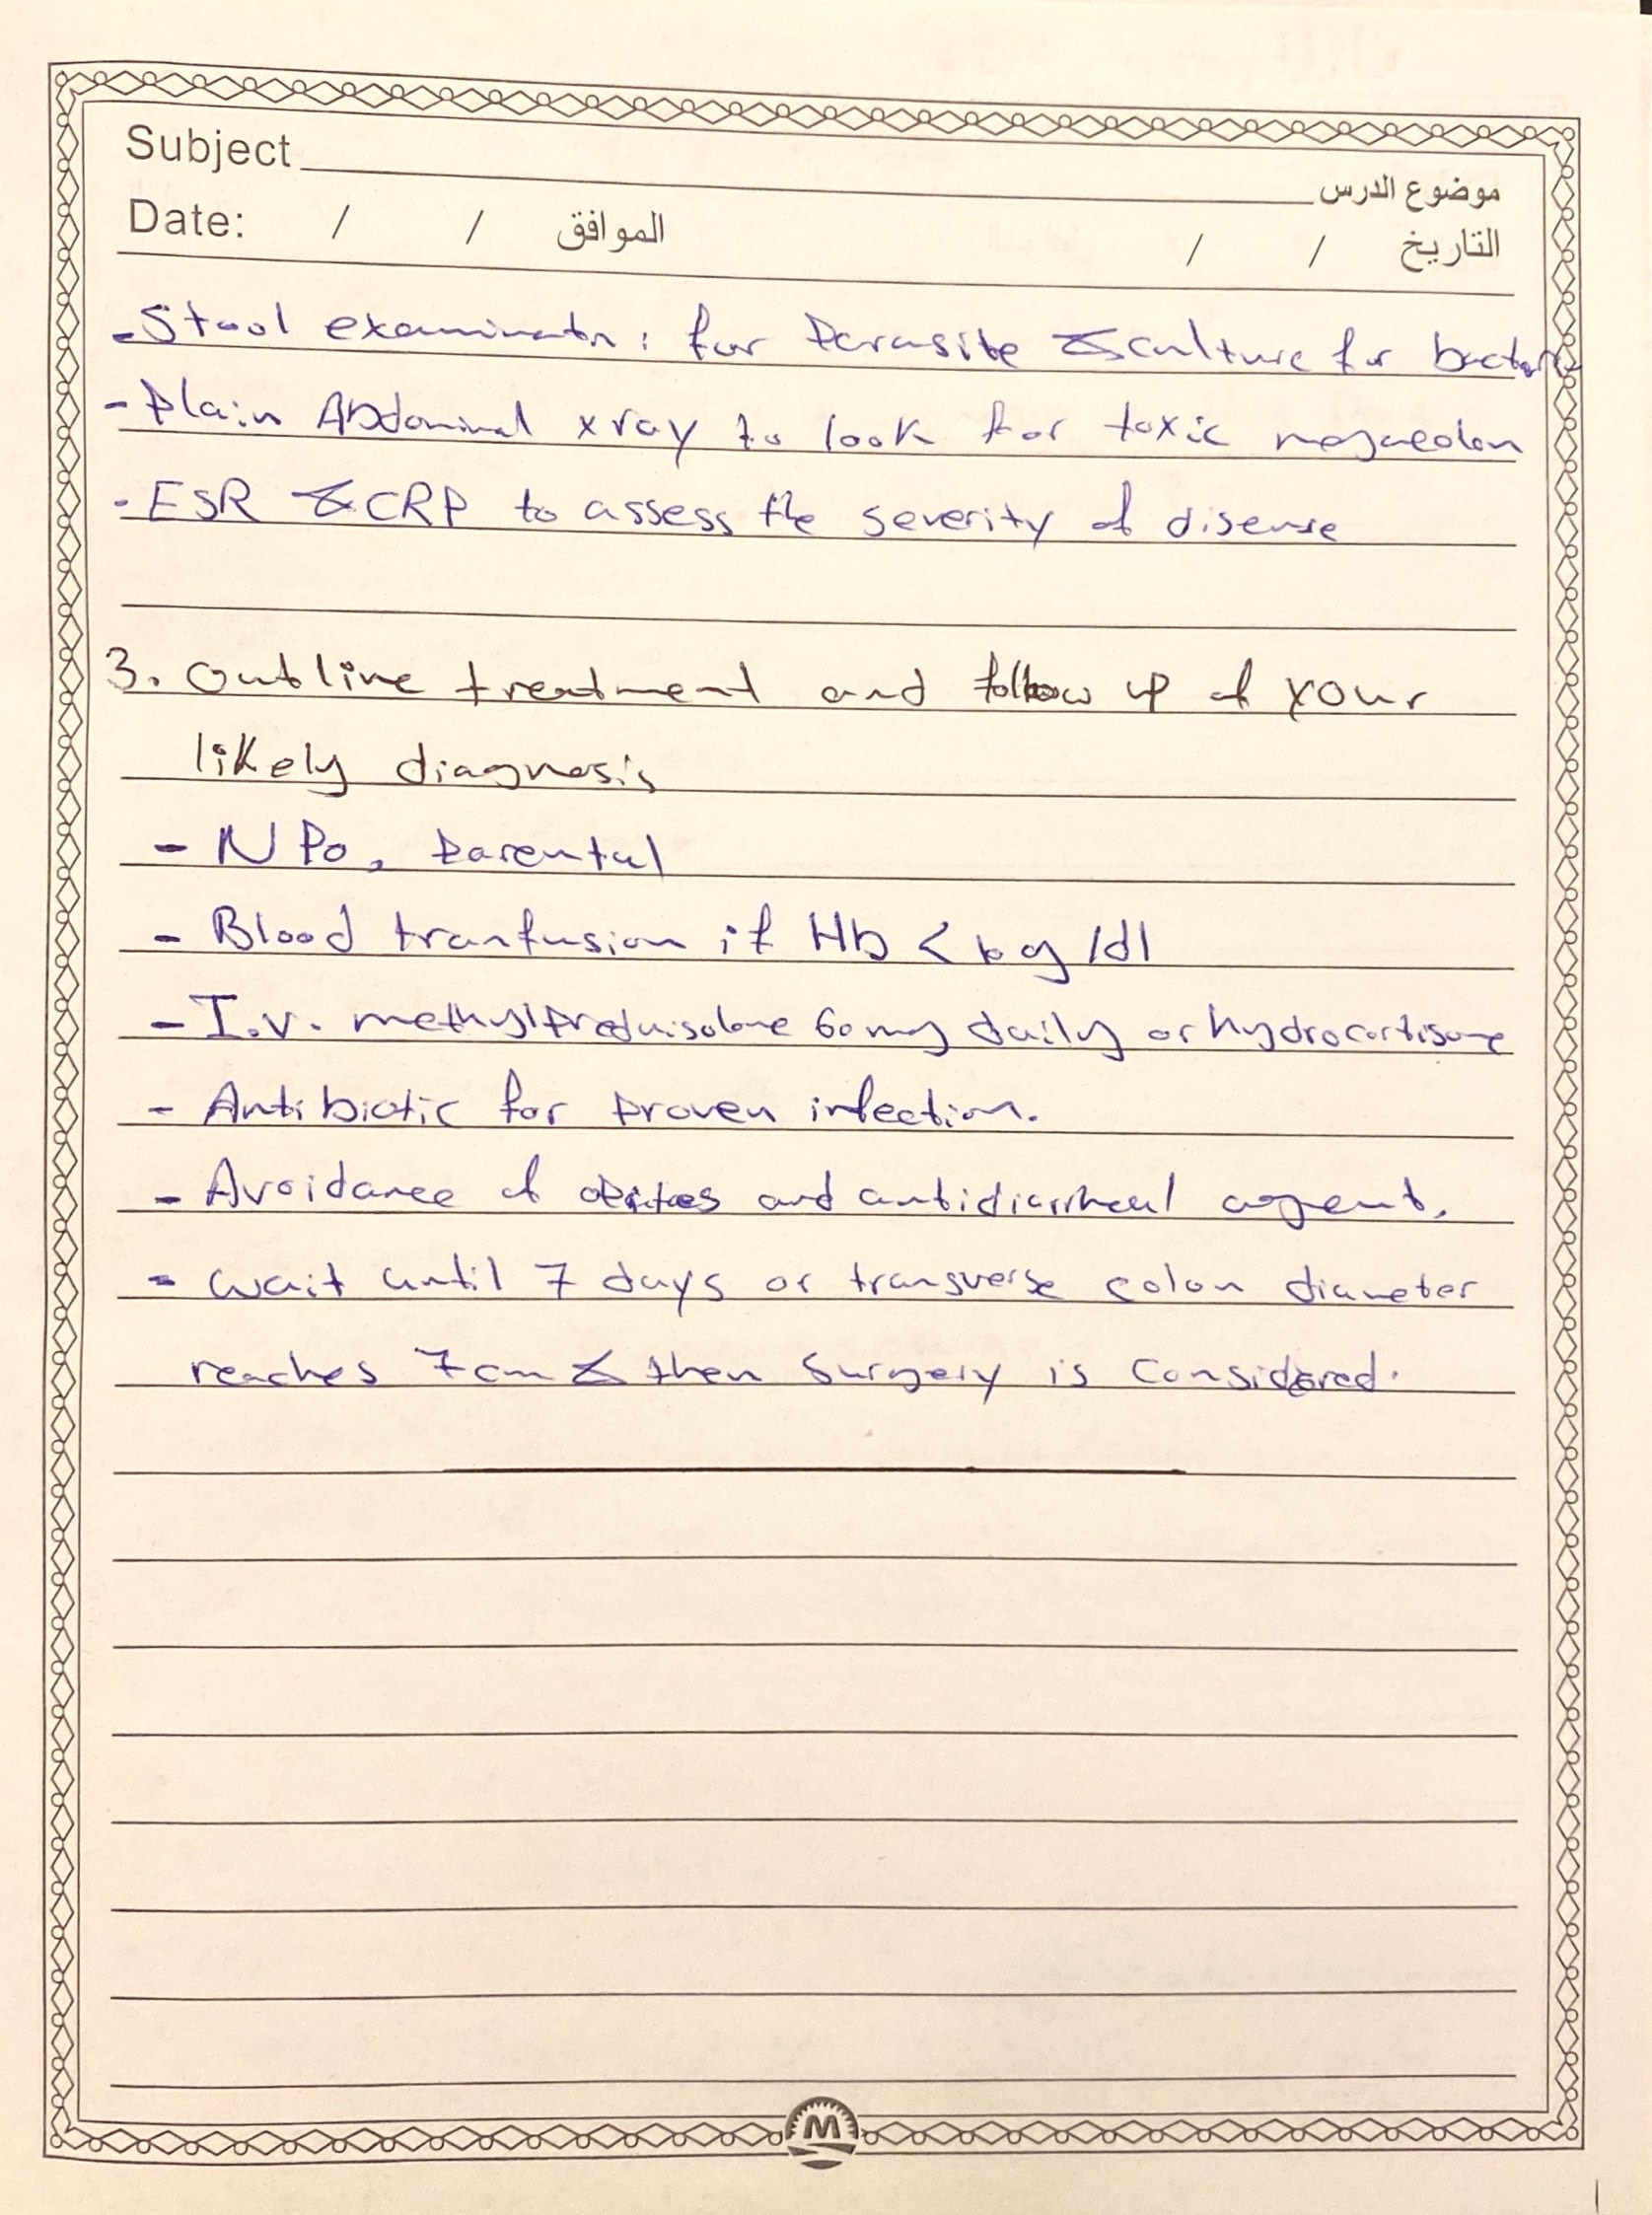 Subject موضوع الدرس
Date: / / الموافق / / التاريخ
- Stool examinatn : for Parasite & culture for
- Plain Abdominal xray to look for toxic megacolon
- ESR & CRP to assess the severity of disease
3. Outline treatment and follow up of your
likely diagnosis
- NPo, Parental
- Blood tranfusion if Hb < g/dl
- I.v. methylprednisolone 60 mg daily or hydrocortisone
- Antibiotic for proven infection.
- Avoidance of opiates and antidiarrheal agent.
- wait until 7 days or transverse colon diameter
reaches 7cm & then Surgery is Considered.
M